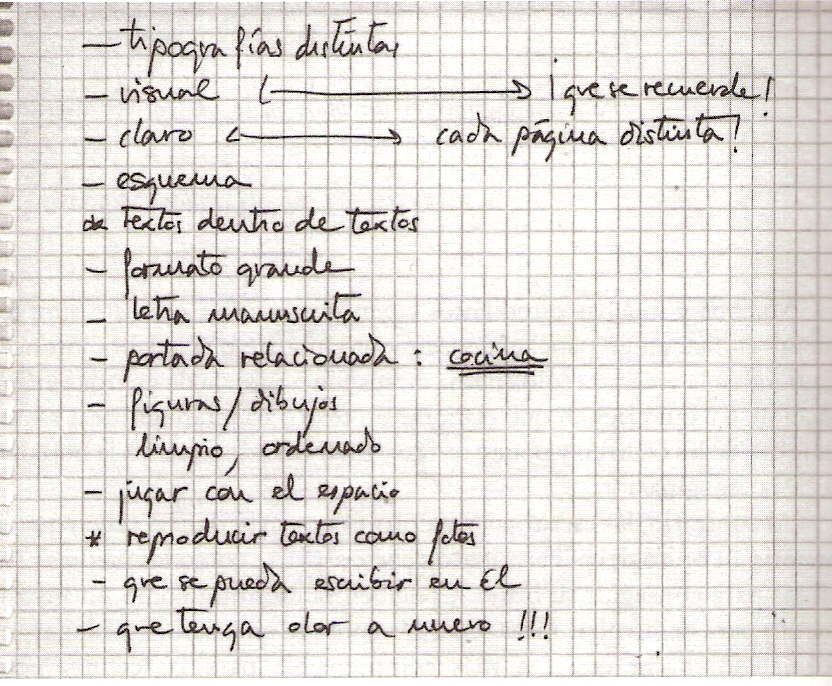 - tipografías distintas
- visual <-----> ¡que se recuerde!
- claro <-----> cada página distinta!
- esquema
* textos dentro de textos
- formato grande
- letra manuscrita
- portada relacionada : cocina
- figuras / dibujos
limpio, ordenado
- jugar con el espacio
* reproducir textos como fotos
- que se pueda escribir en él
- que tenga olor a nuevo !!!